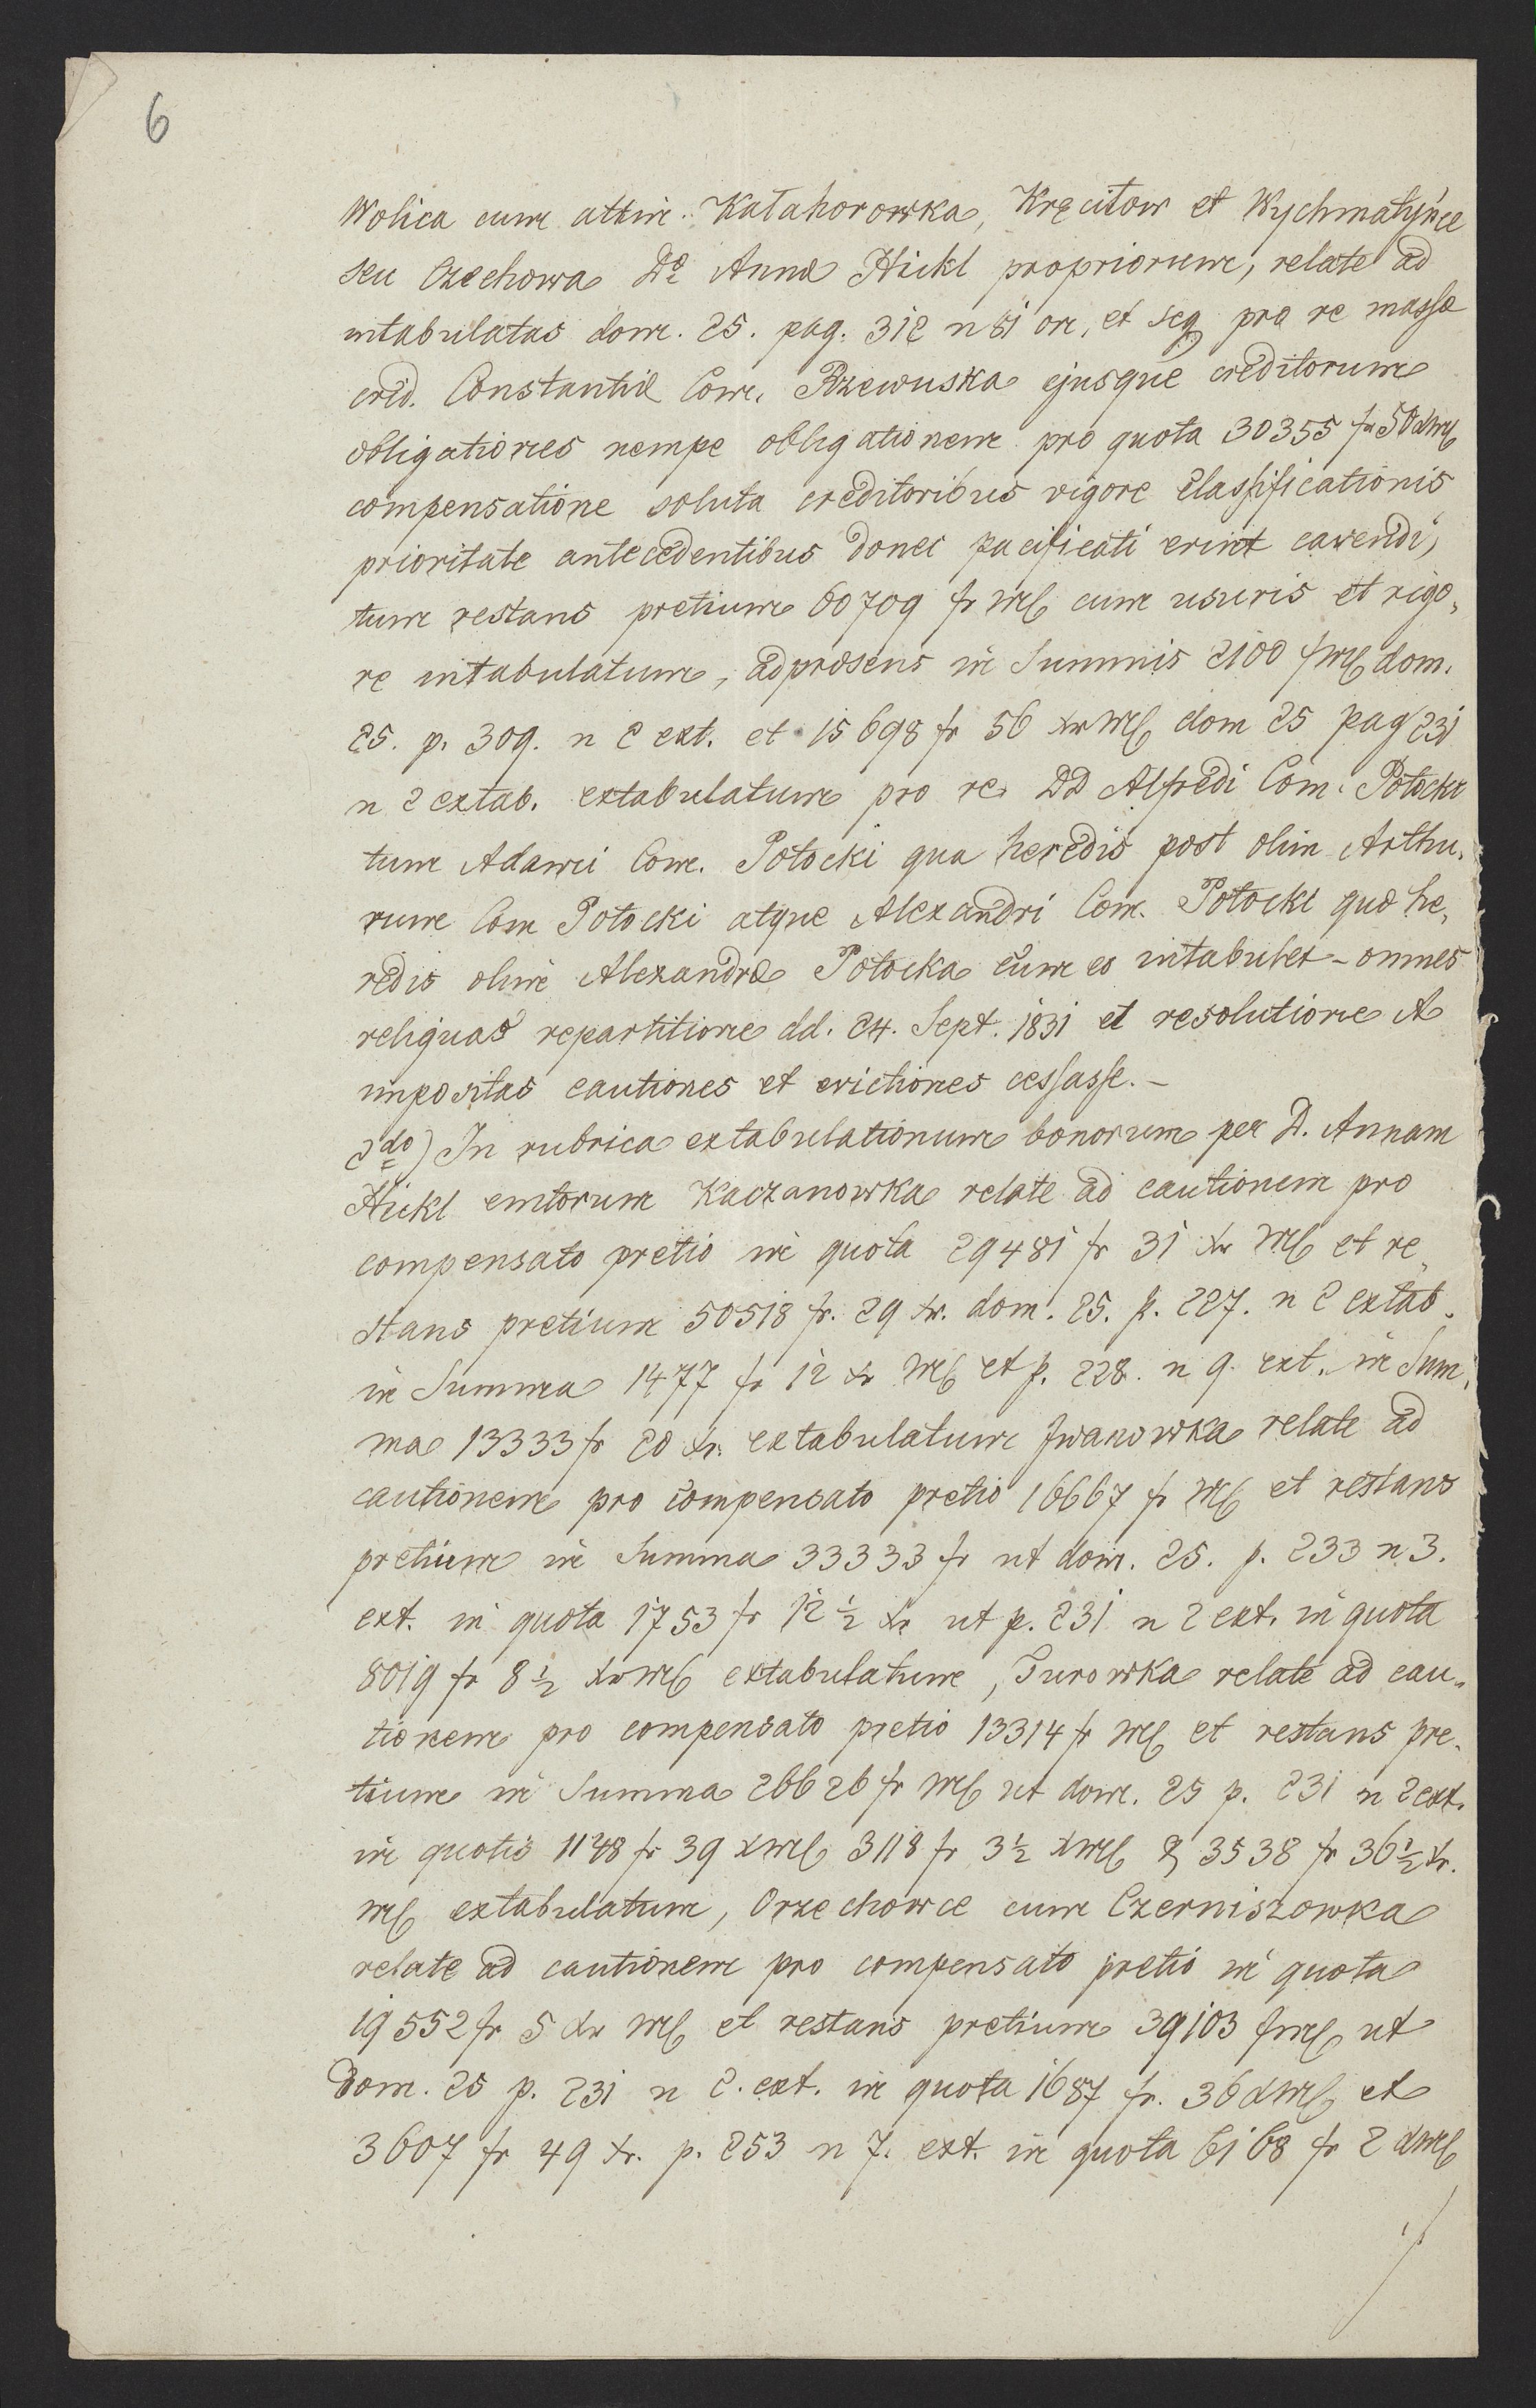 6
Wolica cum attin. Kałahorowka, Kręcitow et Wychmatyńce
seu Czechowa Dę Annæ Hickl propriorum, relate ad
intabulatas dom. 25. pag. 312 n 61 on, et seq pro re massæ
crid. Constantiæ Com. Rzewuska ejusque creditorum
obligationes nempe obligationem pro quota 30355 fr 50 xrMC
compensatione soluta creditoribus vigore Classificationis
prioritate antecedentibus donec pacificati erint cavendi,
tum restans pretium 60709 fr MC cum usuris et rigo,
re intabulatum, adpræsens in Summis 2100 frMC dom.
25. p. 309. n 2 ext. et 15698 fr 56 xr MC dom 25 pag 231
n 2 extab. extabulatum pro re DD Alfredi Com. Potocki
tum Adami Com. Potocki qua heredis post olim Arthu,
rum Com Potocki atque Alexandri Com. Potocki quo he,
redis olim Alexandræ Potocka cum eo intabulet – omnes
reliquas repartitione dd. 24. Sept. 1831 et resolutione A
impositas cautiones et evictiones cessasse. –
2do) In rubrica extabulationum bonorum per D. Annam
Hickl emtorum Kaczanowka relate ad cautionem pro
compensato pretio in quota 29481 fr 31 xr MC et re,
stans pretium 50518 fr. 29 xr. dom. 25. p. 227. n 2 extab.
in Summa 1477 fr 12 xr MC et p. 228. n 9. ext. in Sum,
ma 13333 fr 20 xr. extabulatum Iwanowka relate ad
cautionem pro compensato pretio 16667 fr MC et restans
pretium in Summa 33333 fr ut dom. 25. p. 233 n 3.
ext. in quota 1753 fr 12 1/2 xr ut p. 231 n 2 ext. in quota
8019 fr 8 1/2 xrMC extabulatum, Turowka relate ad cau,
tionem pro compensato pretio 13314 fr MC et restans pre,
tium in Summa 26626 fr MC ut dom. 25 p. 231 n 2 ext.
in quotis 1148 fr 39 xMC 3118 fr 3 1/2 xMC & 3538 fr 36 1/2 xr.
MC extabulatum, Orzechowce cum Czerniszowka
relate ad cautionem pro compensato pretio in quota
19552 fr 5 xr MC et restans pretium 39103 frMC ut
Dom. 25 p. 231 n 2. ext. in quota 1687 fr. 36 xMC et
3607 fr 49 xr. p. 253 n 7. ext. in quota 6168 fr 2 xMC
./.